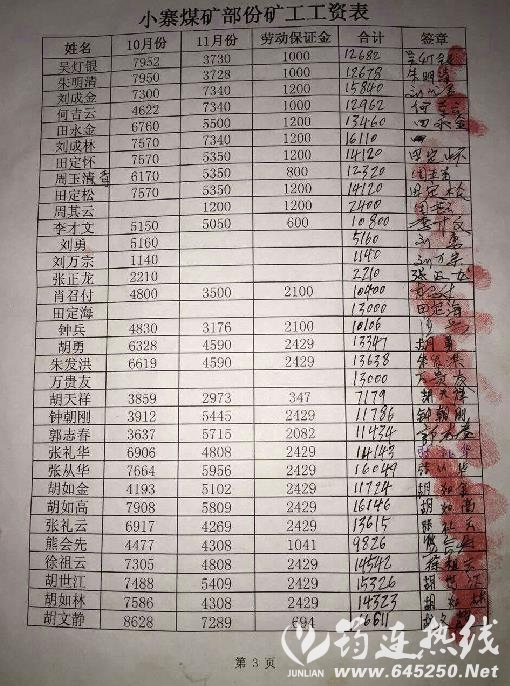 小寨煤矿部份矿工工资表
姓名 10月份 11月份 劳动保证金 合计 签章
吴灯银 7952 3730 1000 12682
朱明清 7950 3728 1000 12678 朱明清
刘成金 7300 7340 1200 15840
何吉云 4622 7340 1000 12962
田永金 6760 5500 1200 13460 田永金
刘成林 7570 7340 1200 16110
田定怀 7570 5350 1200 14120 田定怀
周玉清 6170 5350 800 12320
田定松 7570 5350 1200 14120 田定松
周其云 1200 1200 2400
李才文 5150 5050 600 10800
刘勇 5160 5160 刘勇
刘万宗 1140 1140 刘万宗
张正龙 2210 2210 张正龙
肖召付 4800 3500 2100 10400
田定海 13000 田定海
钟兵 4830 3176 2100 10106
胡勇 6328 4590 2429 13347 胡勇
朱发洪 6619 4590 2429 13638 朱发洪
万贵友 13000 万贵友
胡天祥 3859 2973 347 7179 胡天祥
钟朝刚 3912 5445 2429 11786 钟朝刚
郭志春 3637 5715 2082 11434
张礼华 6906 4808 2429 14143 张礼华
张从华 7664 5956 2429 16049
胡如金 4193 5102 2429 11724 胡如金
胡如高 7908 5809 2429 16146 胡如高
张礼云 6917 4269 2429 13615 张礼云
熊会先 4477 4308 1041 9826
徐祖云 7305 4808 2429 14542 徐祖云
胡世江 7488 5409 2429 15326 胡世江
胡如林 7586 4308 2429 14323 胡如林
胡文静 8628 7289 694 16611
第 3 页
筠连热线
JUNLIAN www.645250.Net